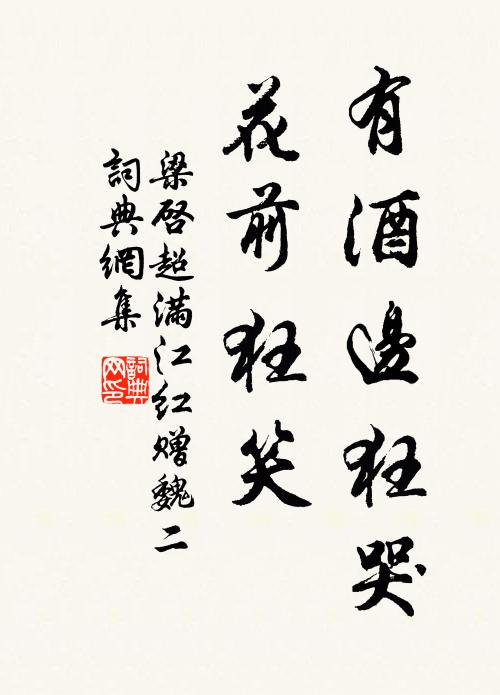 有酒邊狂哭
花前狂笑
梁啓超满江红赠魏二
詞典網集
詞典網印